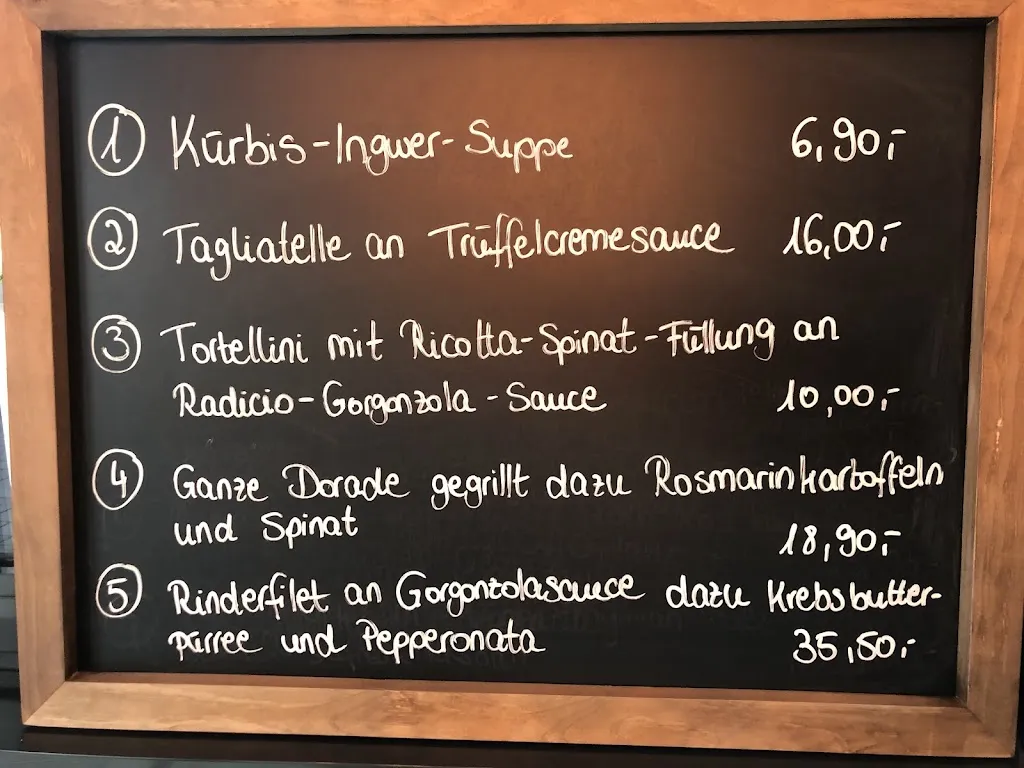 ① Kürbis-Ingwer-Suppe 6,90,-
② Tagliatelle an Trüffelcremesauce 16,00,-
③ Tortellini mit Ricotta-Spinat-Füllung an
Radicio-Gorgonzola-Sauce 10,00,-
④ Ganze Dorade gegrillt dazu Rosmarinkartoffeln
und Spinat 18,90,-
⑤ Rinderfilet an Gorgonzolasauce dazu Krebsbutter-
pürree und Pepperonata 35,50,-